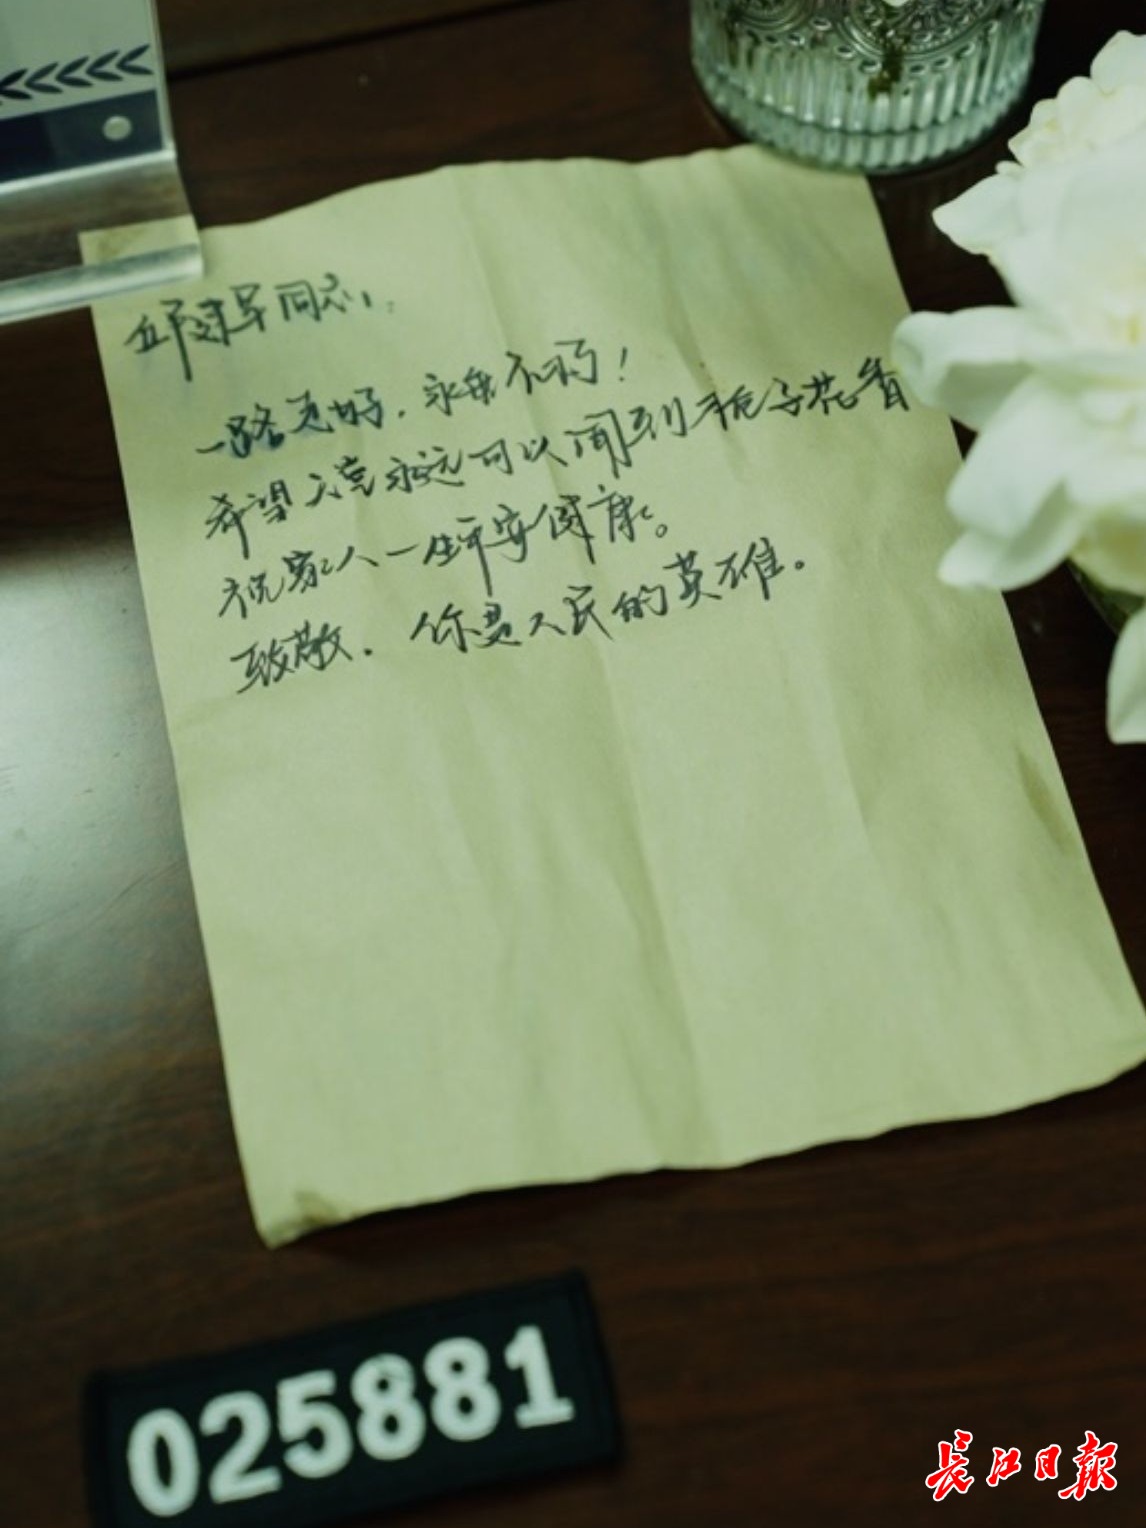 邱建军同志：
一路走好，永垂不朽！
希望天堂永远可以闻到栀子花香
祝家人一生平安健康。
致敬，你是人民的英雄。
025881
长江日报